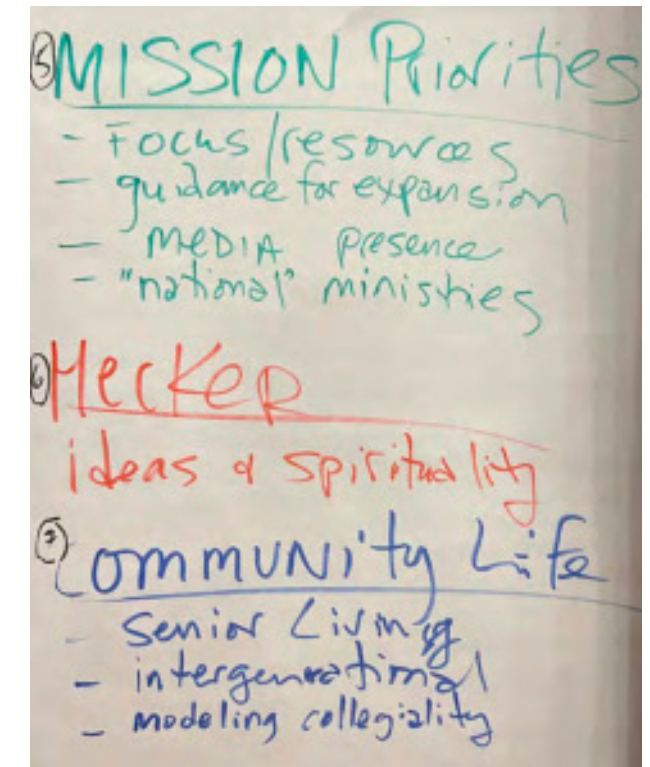 ⑤ MISSION Priorities
- Focus/resources
- guidance for expansion
- MEDIA presence
- "national" ministries
⑥ Hecker
ideas & spirituality
⑦ Community Life
- Senior Living
- intergenerational
- modeling collegiality